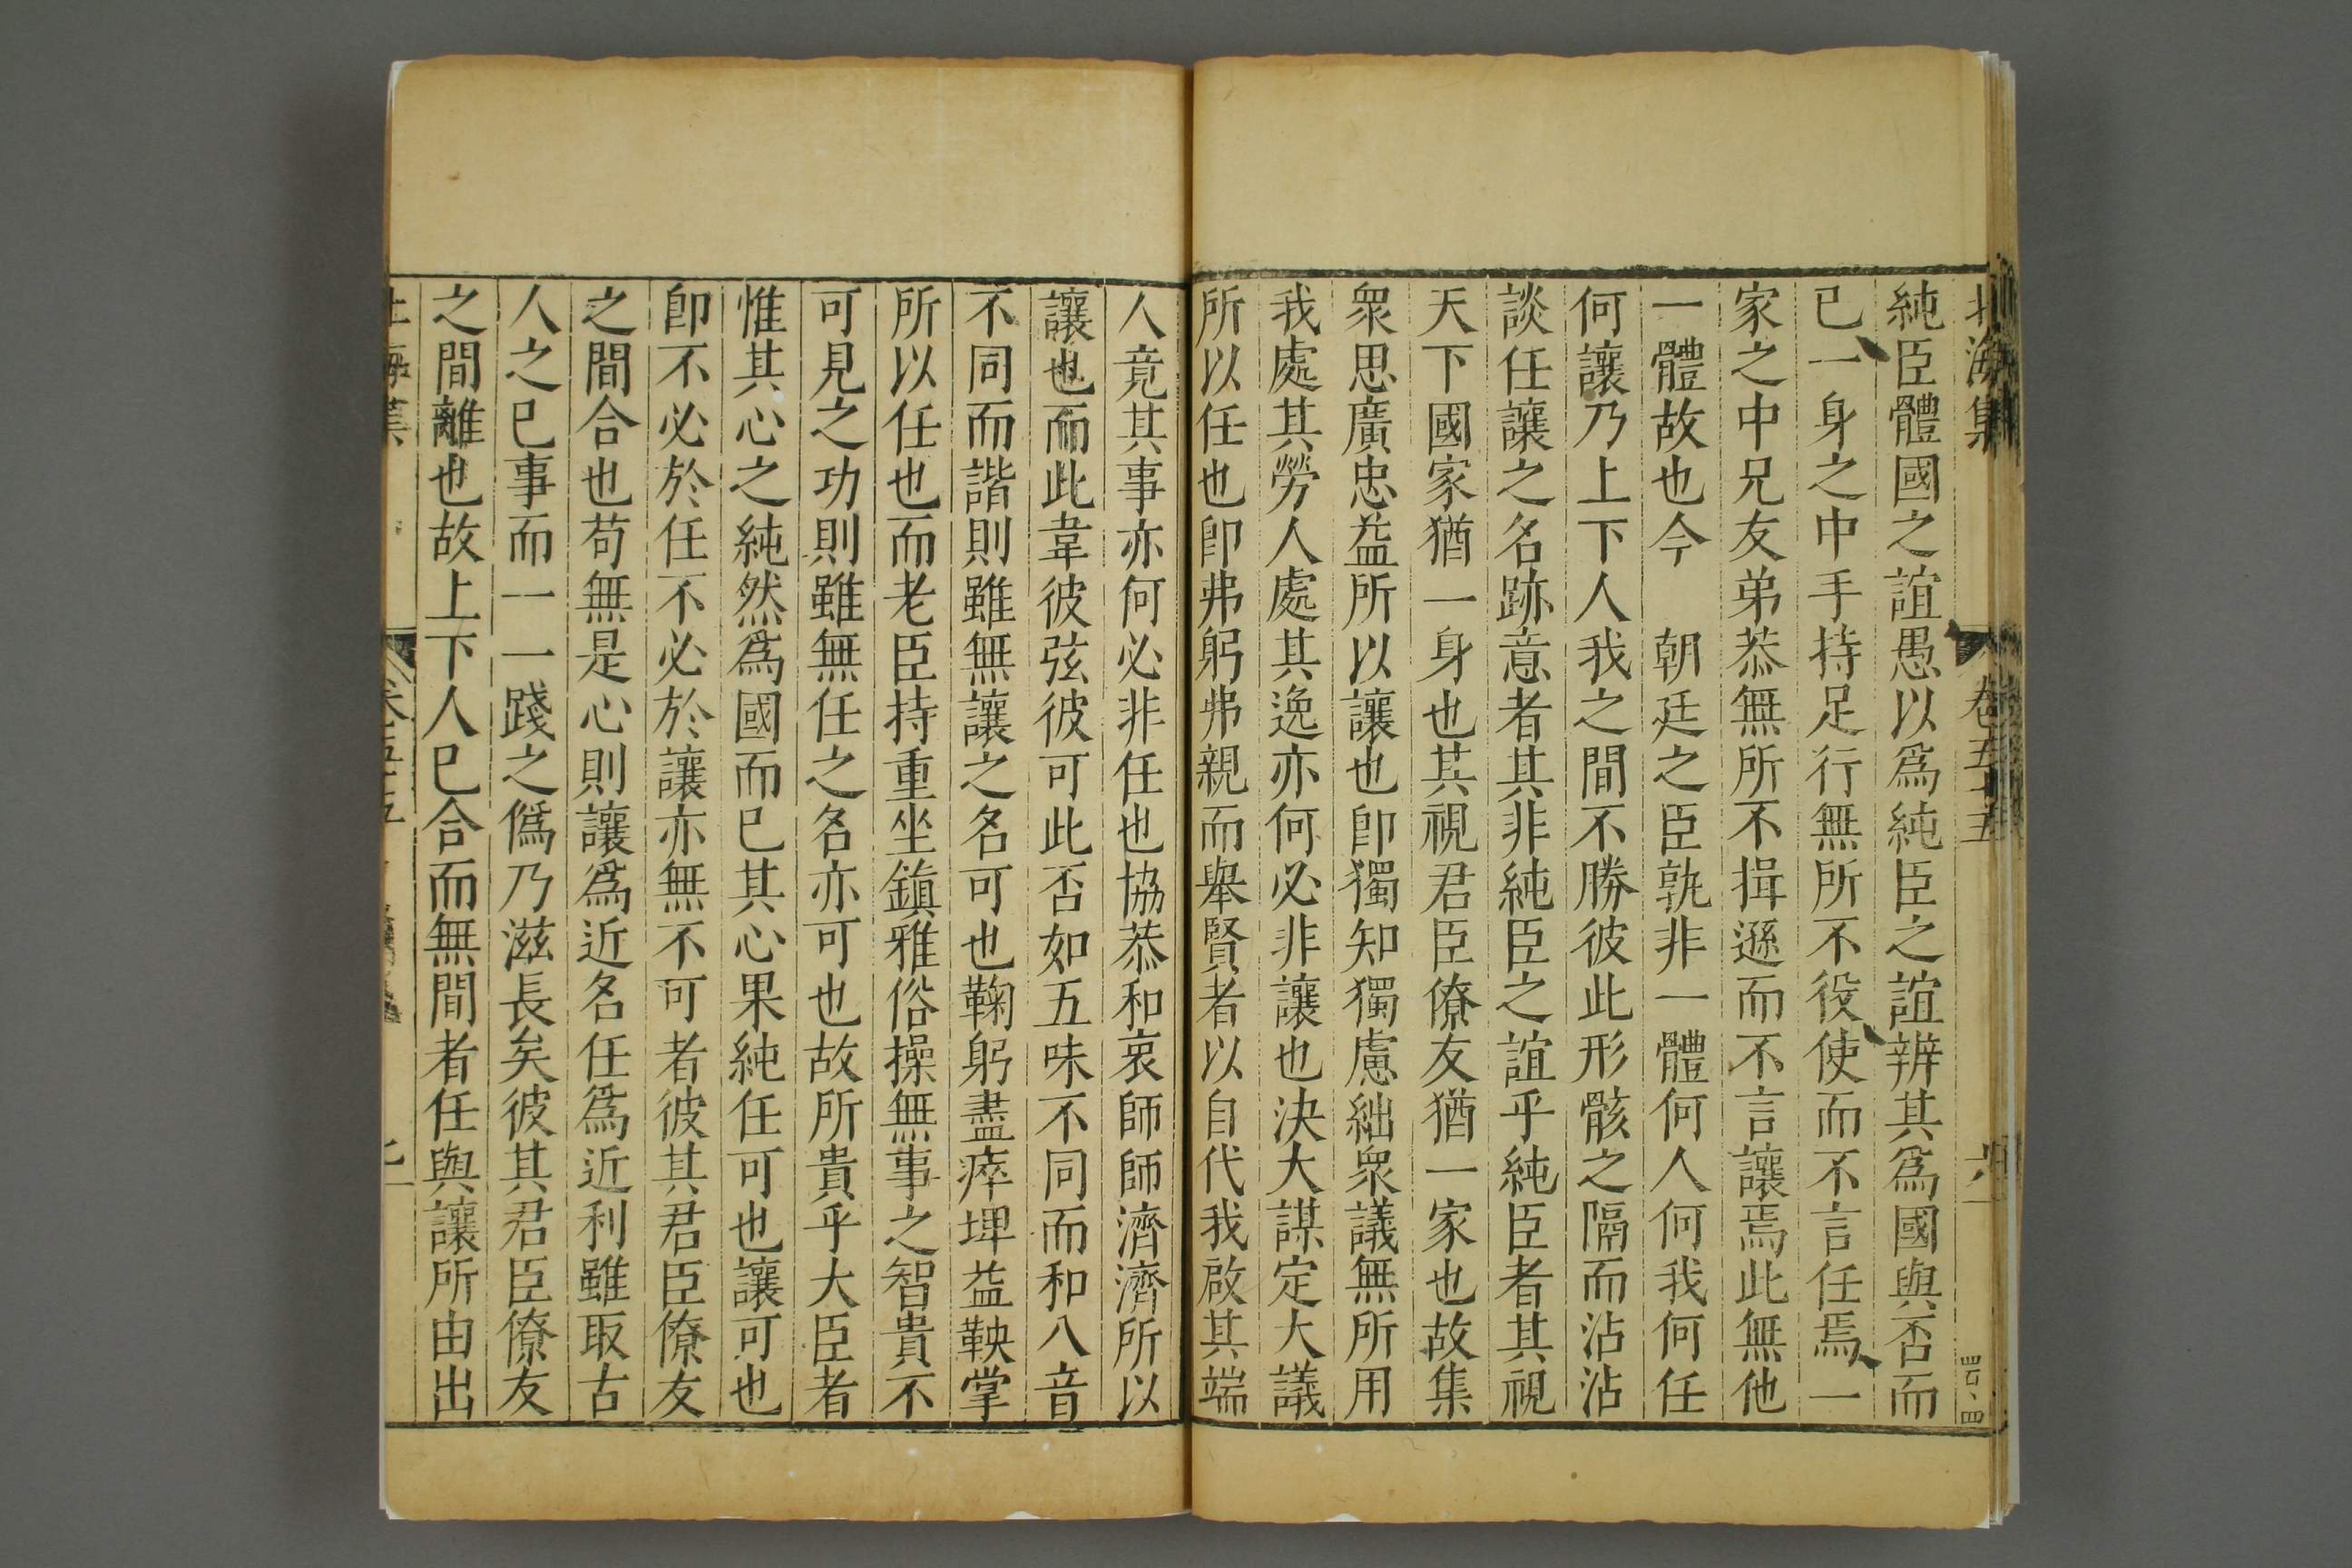 北海集 卷五十五 六
純臣體國之誼愚以爲純臣之誼辨其爲國與否而
已一身之中手持足行無所不役使而不言任焉一
家之中兄友弟恭無所不揖遜而不言讓焉此無他
一體故也今 朝廷之臣孰非一體何人何我何任
何讓乃上下人我之間不勝彼此形骸之隔而沾沾
談任讓之名跡意者其非純臣之誼乎純臣者其視
天下國家猶一身也其視君臣僚友猶一家也故集
衆思廣忠益所以讓也卽獨知獨慮絀衆議無所用
我處其勞人處其逸亦何必非讓也決大謀定大議
所以任也卽弗躬弗親而舉賢者以自代我啟其端
人竟其事亦何必非任也協恭和衷師師濟濟所以
讓也而此韋彼弦彼可此否如五味不同而和八音
不同而諧則雖無讓之名可也鞠躬盡瘁埤益鞅掌
所以任也而老臣持重坐鎮雅俗操無事之智貴不
可見之功則雖無任之名亦可也故所貴乎大臣者
惟其心之純然爲國而已其心果純任可也讓可也
卽不必於任不必於讓亦無不可者彼其君臣僚友
之間合也苟無是心則讓爲近名任爲近利雖取古
人之已事而一一踐之僞乃滋長矣彼其君臣僚友
之間離也故上下人已合而無間者任與讓所由出
卷五十五